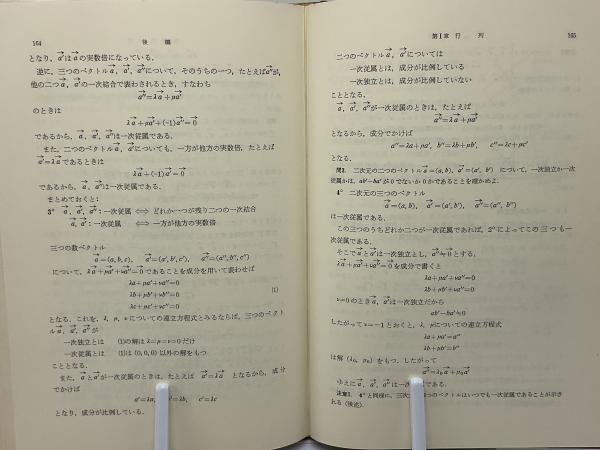 164 後編
となり，a⃗′はa⃗の実数倍になっている．
逆に，三つのベクトルa⃗，a⃗′，a⃗″について，そのうちの一つ，たとえばa⃗″が，
他の二つa⃗，a⃗′の一次結合で表わされるとき，すなわち
a⃗″=λa⃗+μa⃗′
のときは
λa⃗+μa⃗′+(-1)a⃗″=0⃗
であるから，a⃗，a⃗′，a⃗″は一次従属である．
また，二つのベクトルa⃗，a⃗′についても，一方が他方の実数倍，たとえば
a⃗′=λa⃗であるときは
λa⃗+(-1)a⃗′=0⃗
であるから，a⃗，a⃗′は一次従属である．
まとめておくと：
3° a⃗，a⃗′，a⃗″：一次従属 ⟺ どれか一つが残り二つの一次結合
a⃗，a⃗′：一次従属 ⟺ 一方が他方の実数倍
三つの数ベクトル
a⃗=(a, b, c)， a⃗′=(a′, b′, c′)， a⃗″=(a″, b″, c″)
について，λa⃗+μa⃗′+νa⃗″=0⃗であることを成分を用いて表わせば
λa+μa′+νa″=0
λb+μb′+νb″=0 (1)
λc+μc′+νc″=0
となる．これを，λ，μ，νについての連立方程式とみるならば，三つのベクト
ルa⃗，a⃗′，a⃗″が
一次独立とは (1)の解はλ=μ=ν=0だけ
一次従属とは (1)は(0, 0, 0)以外の解をもつ
こととなる．
また，a⃗とa⃗′が一次従属のときは，たとえば a⃗′=λa⃗ となるから，成分
でかけば
a′=λa， b′=λb， c′=λc
となり，成分が比例している．
第1章 行列 165
二つのベクトルa⃗，a⃗′については
一次従属とは，成分が比例している
一次独立とは，成分が比例していない
こととなる．
a⃗，a⃗′，a⃗″が一次従属のときは，たとえば
a⃗″=λa⃗+μa⃗′
となるから，成分でかけば
a″=λa+μa′， b″=λb+μb′， c″=λc+μc′
となる．
二次元の二つのベクトルa⃗=(a, b)，a⃗′=(a′, b′) について，一次独立か一次
従属かは，ab′-ba′が0でないか0かであることを確かめよ．
4° 二次元の三つのベクトル
a⃗=(a, b)， a⃗′=(a′, b′)， a⃗″=(a″, b″)
は一次従属である．
この三つのうちどれか二つが一次従属であれば，2°によってこの三つも一
次従属である．
そこでa⃗とa⃗′は一次独立とし，a⃗″≒0⃗とする．
λa⃗+μa⃗′+νa⃗″=0⃗を成分で書くと
λa+μa′+νa″=0
λb+μb′+νb″=0
ν=0のときa⃗，a⃗′は一次独立だから
ab′-ba′≒0
したがってν=-1とおくと，λ，μについての連立方程式
λa+μa′=a″
λb+μb′=b″
は解 (λ₀, μ₀) をもつ．したがって
a⃗″=λ₀a⃗+μ₀a⃗′
ゆえにa⃗，a⃗′，a⃗″は一次従属である．
注意1． 4°と同様に，三次元 つのベクトルはいつでも一次従属であることが示さ
れる（後述）．